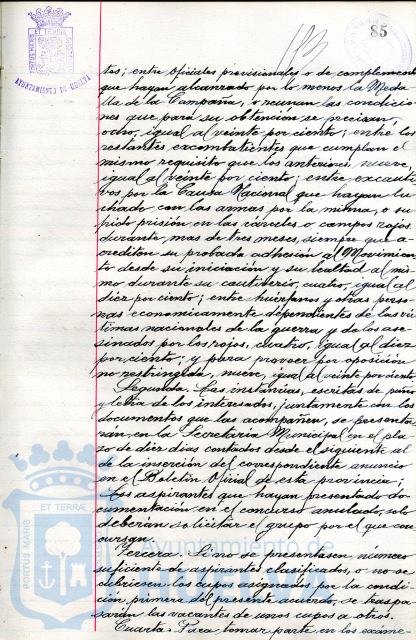 85
AYUNTAMIENTO DE HUELVA
tes; entre Oficiales provisionales o de complemento
que hayan alcanzado por lo menos la Meda-
lla de la Campaña, o reunan las condicio-
nes que para su obtención se precisan,
ocho, igual al veinte por ciento; entre los
restantes excombatientes que cumplan el
mismo requisito que los anteriores, nueve,
igual al veinte por ciento; entre excauti-
vos por la Causa Nacional que hayan lu-
chado con las armas por la misma, o su-
frido prisión en las cárceles o campos rojos
durante mas de tres meses, siempre que a-
crediten su probada adhesión al Movimien-
to desde su iniciación y su lealtad al mis-
mo durante su cautiverio, cuatro, igual al
diez por ciento; entre huérfanos y otras perso-
nas economicamente dependientes de las vic-
timas nacionales de la guerra y de los ase-
sinados por los rojos, cuatro, igual al diez
por ciento; y para proveer por oposición
no restringida, nueve, igual al veinte por ciento.
Segunda. Las instancias, escritas de puño
y letra de los interesados, juntamente con los
documentos que la acompañen, se presenta-
rán en la Secretaría Municipal en el pla-
zo de diez dias contados desde el siguiente al
de la inserción del correspondiente anuncio
en el Boletin Oficial de esta provincia;
Los aspirantes que hayan presentado do-
cumentación en el concurso anulado, solo
deberán solicitar el grupo por el que con-
cursan.
Tercera. Si no se presentasen número
suficiente de aspirantes clasificados, o no se
cubriesen los cupos asignados por la condi-
ción primera del presente acuerdo, se traspa-
sarán las vacantes de unos cupos a otros.
Cuarta: Para tomar parte en los exáme-
PORTUS MARIS ET TERRÆ
Ayuntamiento de
HUELVA